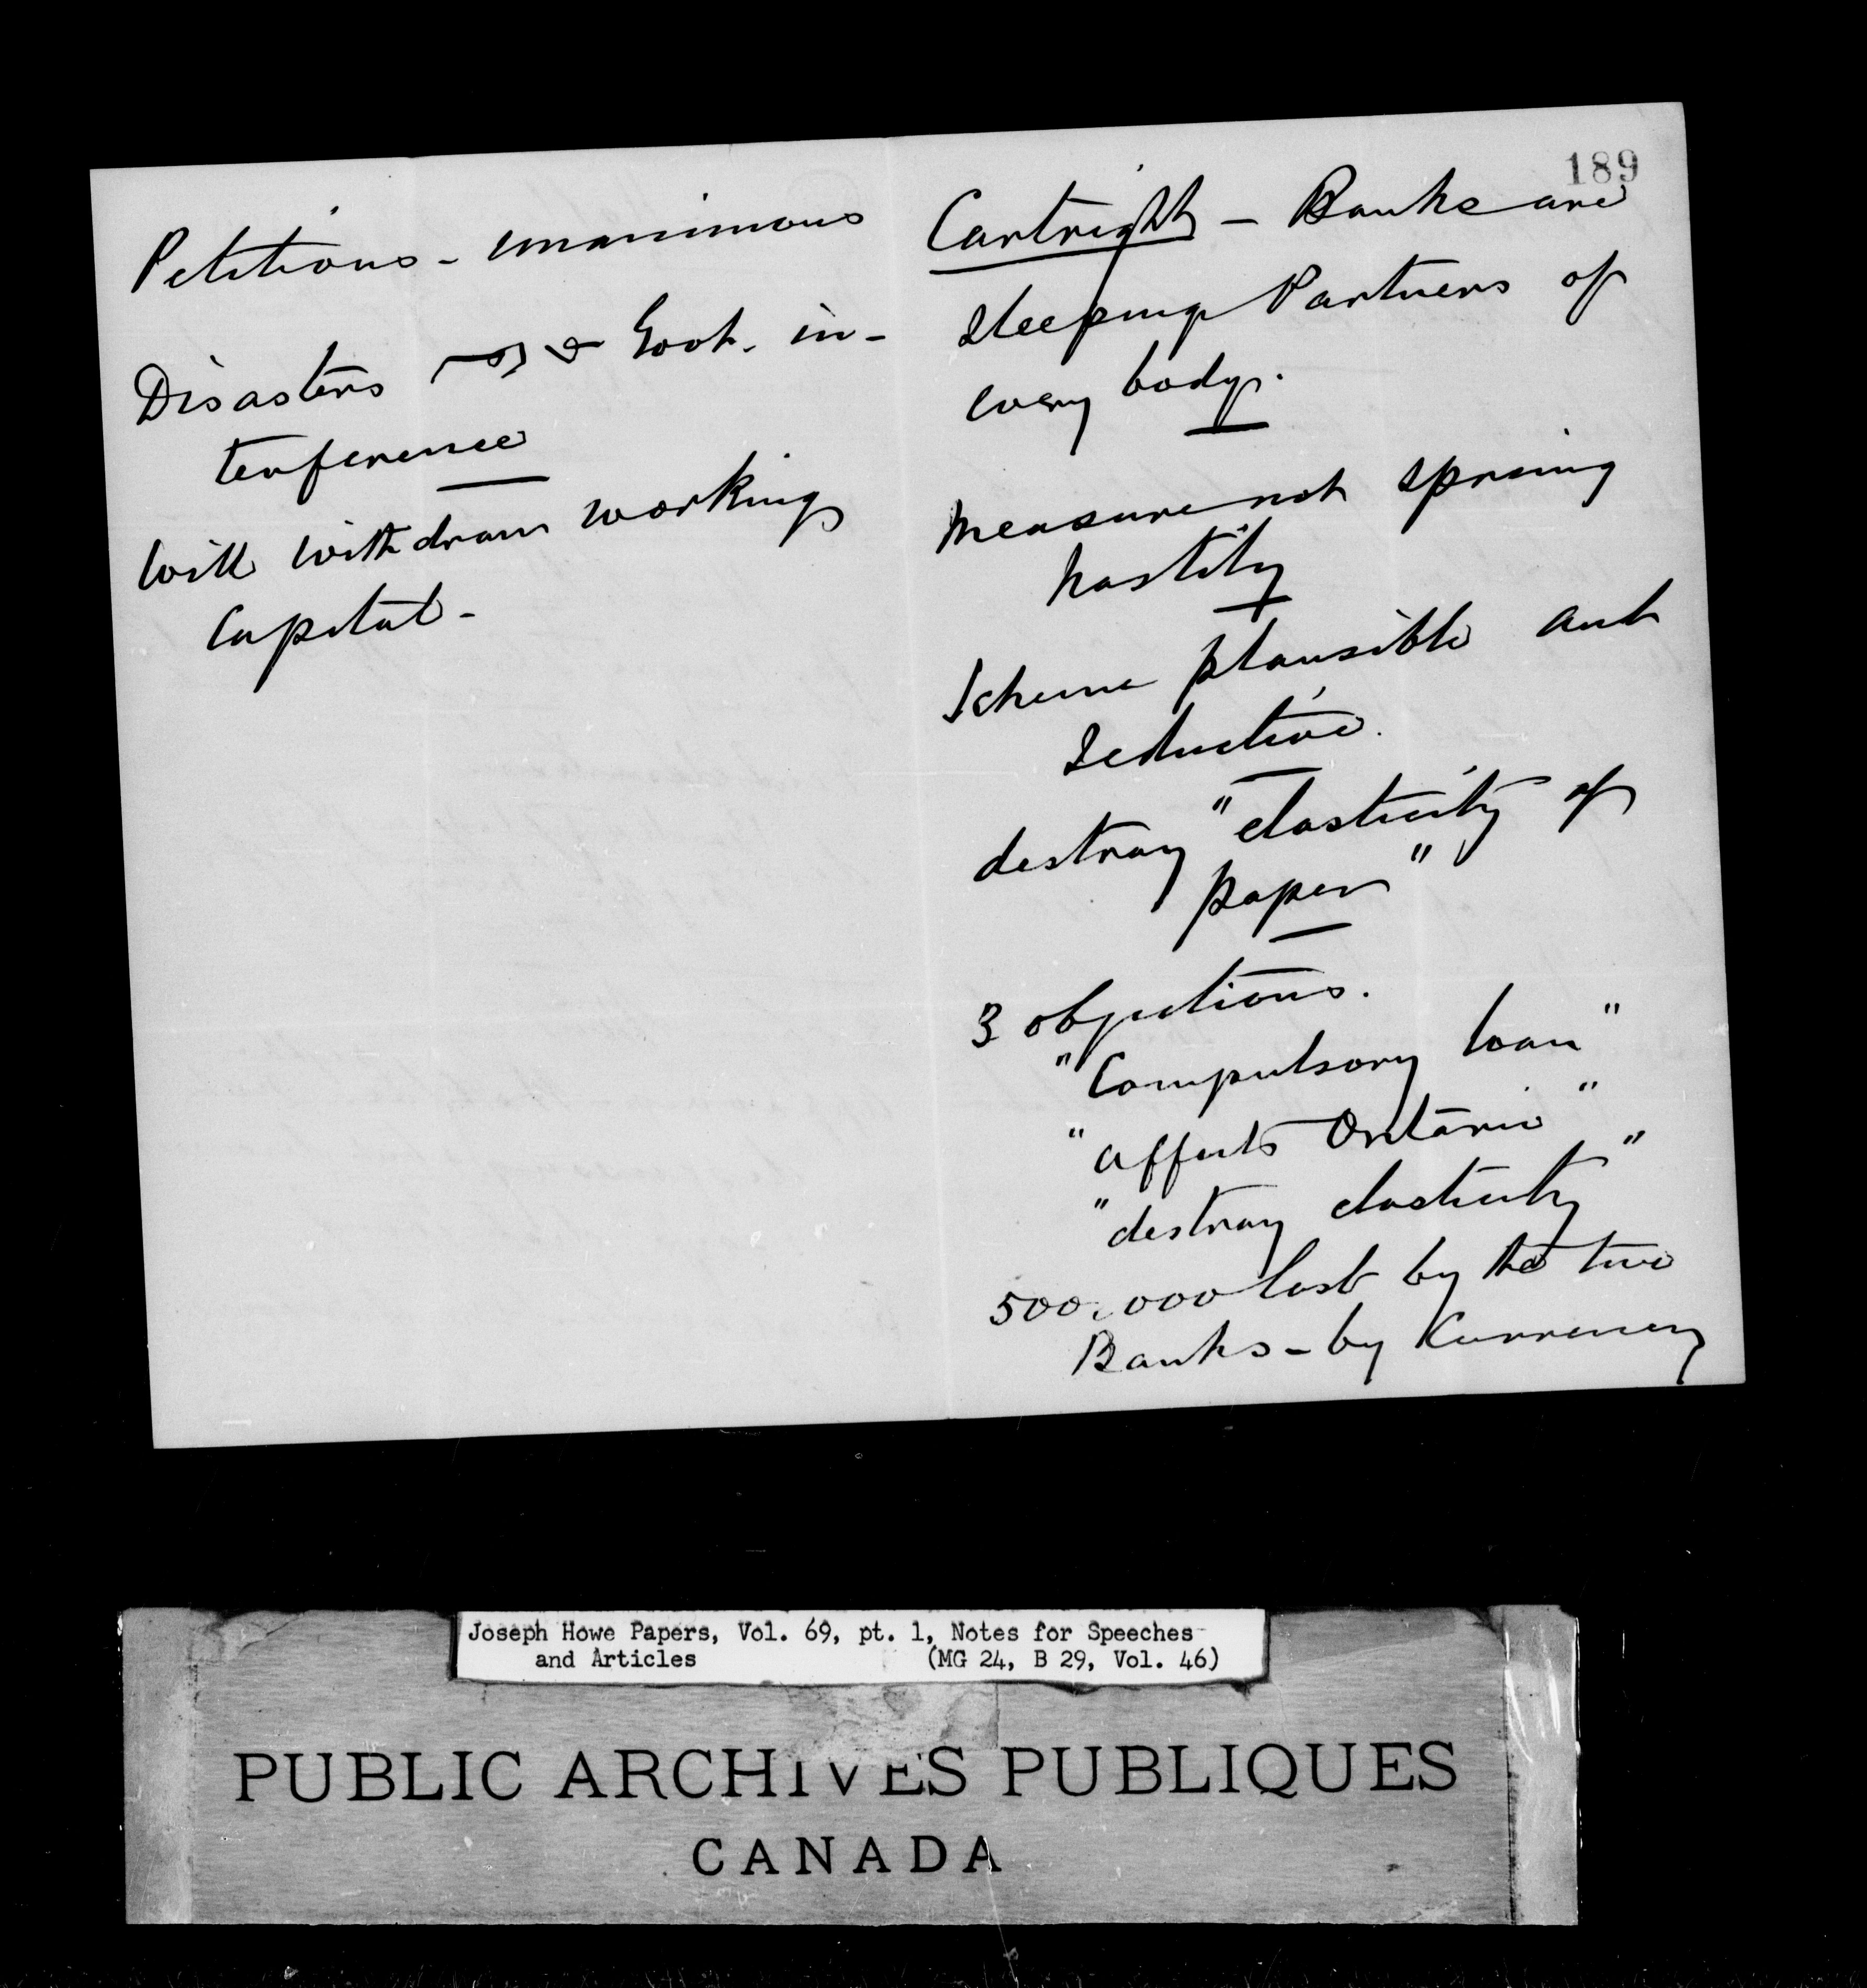 Petitions - unanimous
Disasters Govt. in-
terference
Will withdraw working
Capital -
189
Cartright - Banks are
Sleeping Partners of
every body.
Measure not sprung
hastily
Scheme plausible and
Seductive.
destroy "elasticity of
paper"
3 objections.
"Compulsory loan"
"affects Ontario"
"destroy elasticity"
500,000 lost by the two
Banks - by Currency
Joseph Howe Papers, Vol. 69, pt. 1, Notes for Speeches
and Articles (MG 24, B 29, Vol. 46)
PUBLIC ARCHIVES PUBLIQUES
CANADA